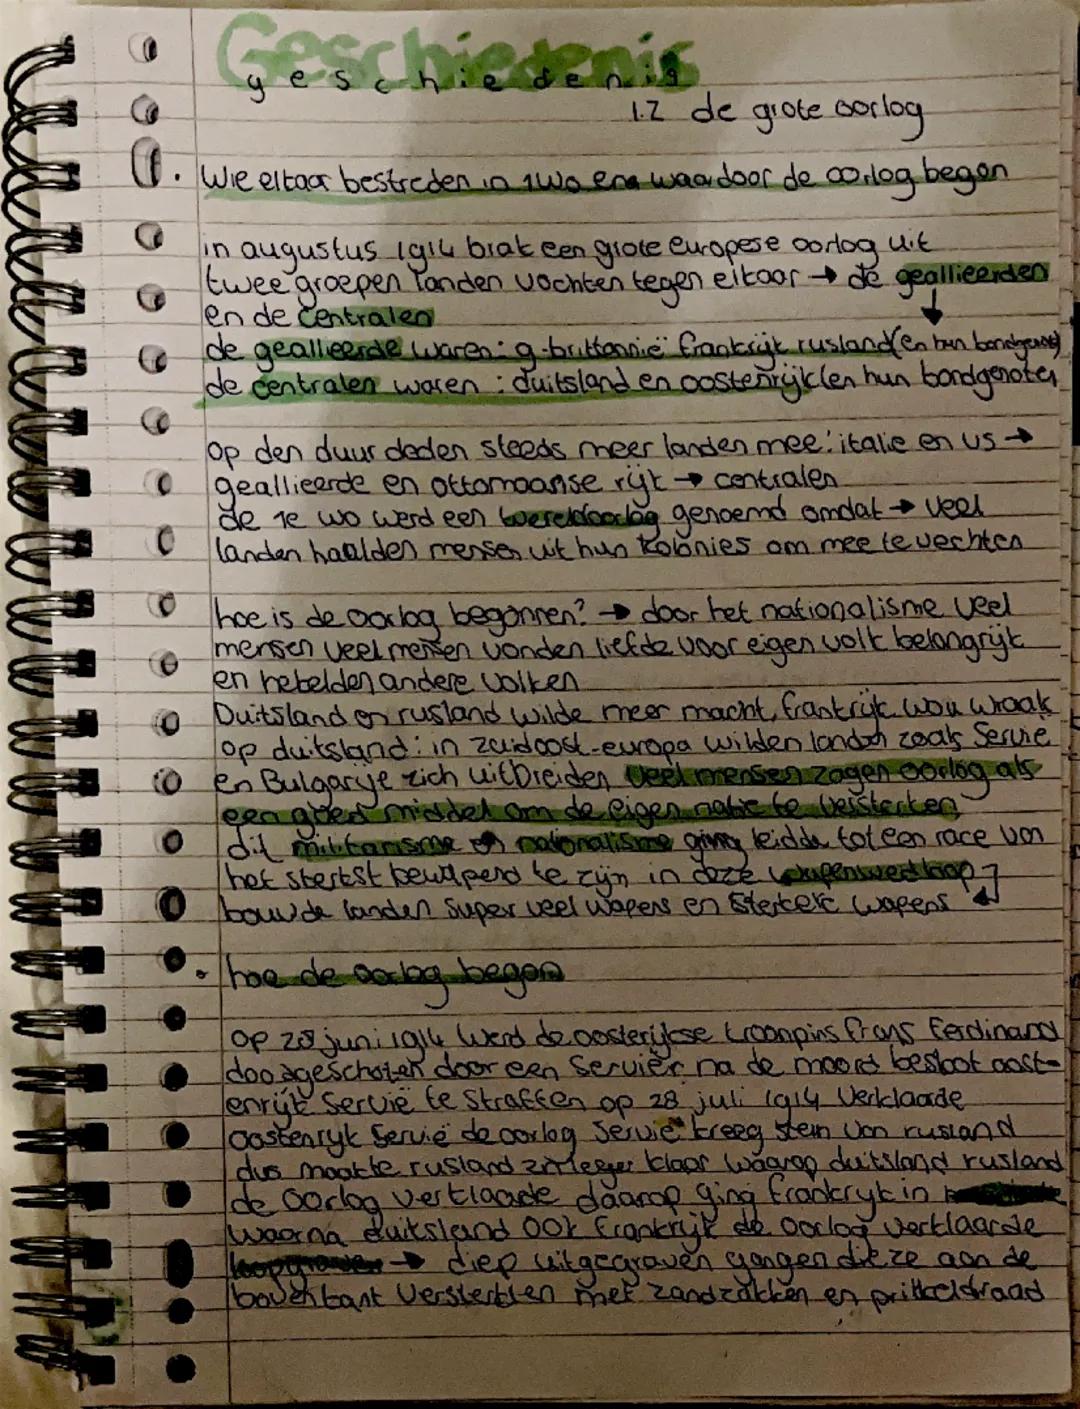 Geschiedenis
geschiedenis
1.2 de grote oorlog
. Wie elkaar bestreden in 1wo en waardoor de oorlog begon
in augustus 1914 brak een grote europese oorlog uit
twee groepen landen vochten tegen elkaar → de geallieerden
en de centralen
de geallieerde waren: g-brittannië frankrijk rusland (en hun bondgenoten)
de centralen waren : duitsland en oostenrijk (en hun bondgenoten
op den duur deden steeds meer landen mee: italie en us →
geallieerde en ottomaanse rijk → centralen
de 1e wo werd een wereldoorlog genoemd omdat → veel
landen haalden mensen uit hun kolonies om mee te vechten
hoe is de oorlog begonnen? → door het nationalisme veel
mensen veel mensen vonden liefde voor eigen volk belangrijk
en hebelden andere volken
Duitsland en rusland wilde meer macht, frankrijk wou wraak
op duitsland: in zuidoost-europa wilden landen zoals Servie
en Bulgarye zich uitbreiden veel mensen zagen oorlog als
een goed middel om de eigen natie te versterken
dit militarisme en nationalisme ging leidde tot een race van
het sterkst bewapend te zijn in deze wapenwedloop
bouwde landen super veel wapens en sterkere wapens
. hoe de oorlog begon
op 28 juni 1914 werd de oosterijkse kroonpins frans ferdinand
doodgeschoten door een Serviër na de moord besloot oost-
enrijk Servië te straffen op 28 juli 1914 verklaarde
oostenryk Servië de oorlog Servië kreeg stein van rusland
dus maakte rusland zijn leger klaar waarop duitsland rusland
de oorlog verklaarde daarop ging frankryk in
waarna duitsland ook frankrijk de oorlog verklaarde
loopgraven → diep uitgegraven gangen die ze aan de
bovenkant versterkten met zandzakken en prikkeldraad